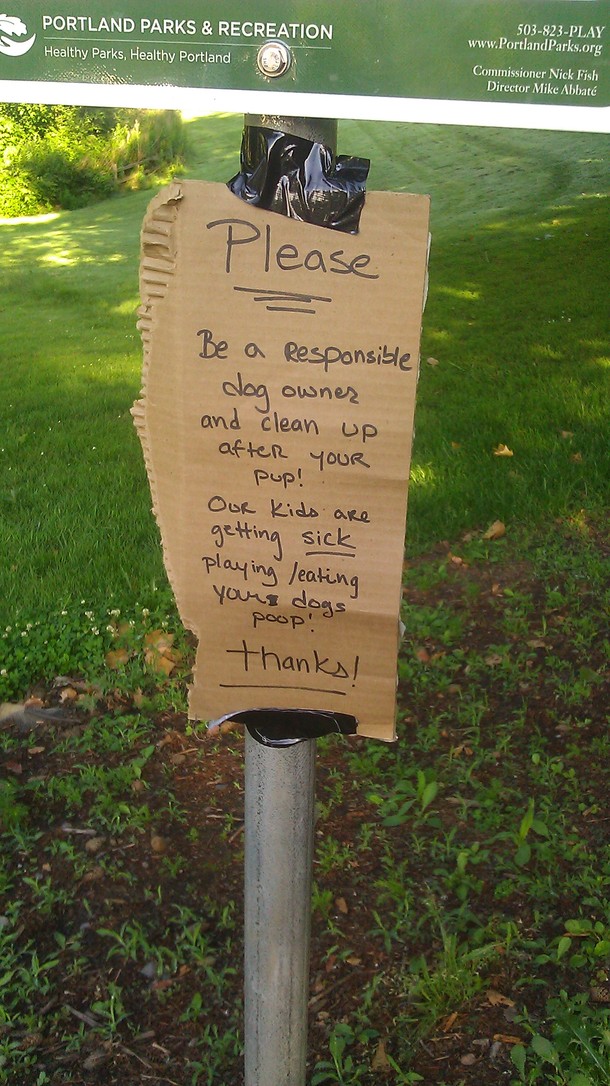 PORTLAND PARKS & RECREATION
Healthy Parks, Healthy Portland
503-823-PLAY
www.PortlandParks.org
Commissioner Nick Fish
Director Mike Abbaté
Please
Be a Responsible
dog owner
and clean up
after your
pup!
Our kids are
getting sick
playing/eating
your dogs
poop!
thanks!